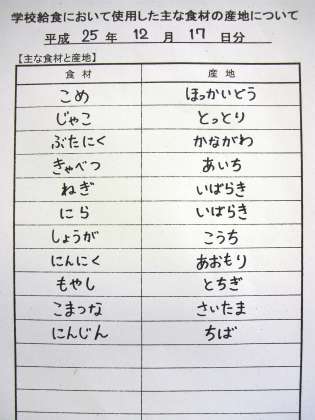 学校給食において使用した主な食材の産地について
平成 25 年 12 月 17 日分
【主な食材と産地】
食材 産地
こめ ほっかいどう
じゃこ とっとり
ぶたにく かながわ
きゃべつ あいち
ねぎ いばらき
にら いばらき
しょうが こうち
にんにく あおもり
もやし とちぎ
こまつな さいたま
にんじん ちば